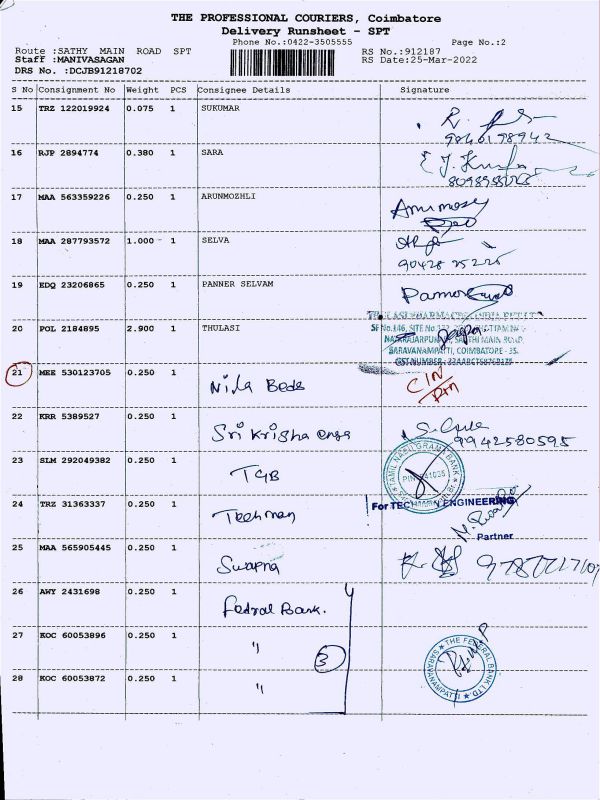 THE PROFESSIONAL COURIERS, Coimbatore
Delivery Runsheet - SPT
Phone No.:0422-3505555 Page No.:2
Route :SATHY MAIN ROAD SPT RS No.:912187
Staff :MANIVASAGAN RS Date:25-Mar-2022
DRS No. :DCJB91218702
S No Consignment No Weight PCS Consignee Details Signature
15 TRZ 122019924 0.075 1 SUKUMAR
16 RJP 2894774 0.380 1 SARA
17 MAA 563359226 0.250 1 ARUNMOZHLI
18 MAA 287793572 1.000 1 SELVA
19 EDQ 23206865 0.250 1 PANNER SELVAM
20 POL 2184895 2.900 1 THULASI
SARAVANAMPATTI, COIMBATORE - 35.
21 MEE 530123705 0.250 1 Nila Beds
22 KRR 5389527 0.250 1 Sri Krisha engg
9942580595
23 SLM 292049382 0.250 1 TGB
TAMIL NADU GRAMA BANK
24 TRZ 31363337 0.250 1 Techmen
For TECHMEN ENGINEERING
Partner
25 MAA 565905445 0.250 1 Swapna
26 AWY 2431698 0.250 1 Fedral Bank.
27 KOC 60053896 0.250 1 "
3
THE FEDERAL BANK LTD
SARAVANAMPATTI
28 KOC 60053872 0.250 1 "